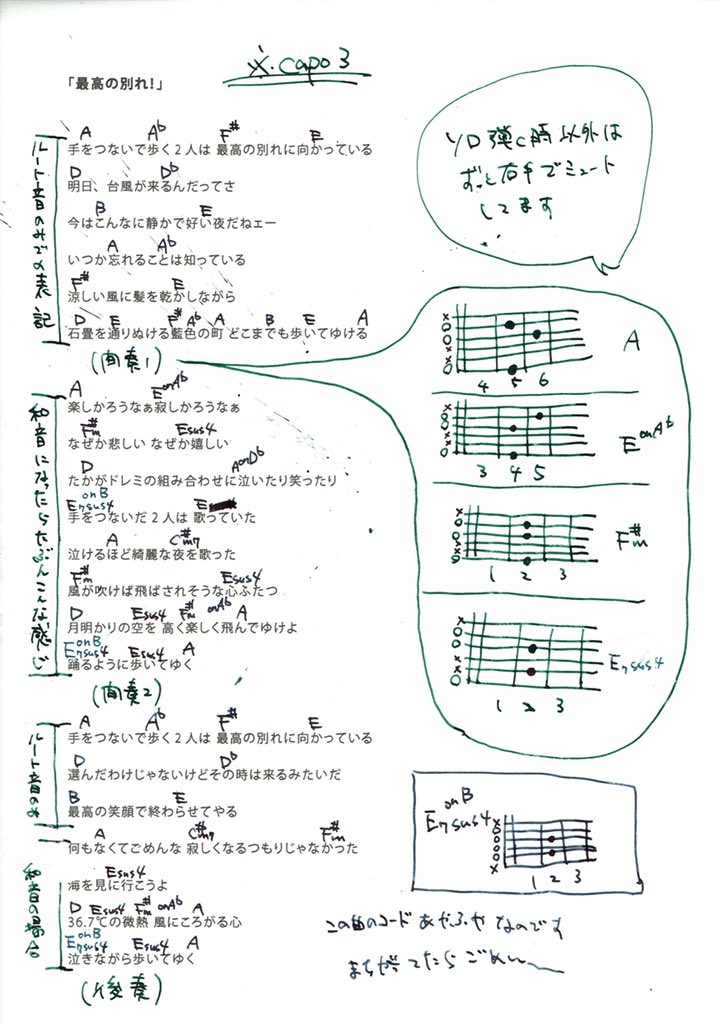 ※.capo 3
「最高の別れ!」
ソロ弾く時以外は
ずっと右手でミュート
してます
ルート音のみでの表記
A A♭ F# E
手をつないで歩く2人は 最高の別れに向かっている
D D♭
明日、台風が来るんだってさ
B E
今はこんなに静かで好い夜だねェー
A A♭
いつか忘れることは知っている
F# E
涼しい風に髪を乾かしながら
D E F# A♭ A B E A
石畳を通りぬける藍色の町 どこまでも歩いてゆける
(間奏1)
× ○ × ○
4 5 6
A
3 4 5
EonA♭
1 2 3
F#m
1 2 3
E7sus4
和音になったらたぶんこんな感じ
A EonA♭
楽しかろうなぁ寂しかろうなぁ
F#m Esus4
なぜか悲しい なぜか嬉しい
D AonD♭
たかがドレミの組み合わせに泣いたり笑ったり
E7sus4onB E
手をつないだ2人は 歌っていた
A C#m7
泣けるほど綺麗な夜を歌った
F#m Esus4
風が吹けば飛ばされそうな心ふたつ
D Esus4 F#m onA♭ A
月明かりの空を 高く楽しく飛んでゆけよ
E7sus4onB Esus4 A
踊るように歩いてゆく
(間奏2)
ルート音のみ
A A♭ F# E
手をつないで歩く2人は 最高の別れに向かっている
D D♭
選んだわけじゃないけどその時は来るみたいだ
B E
最高の笑顔で終わらせてやる
和音の場合
A C#m7 F#m
何もなくてごめんな 寂しくなるつもりじゃなかった
Esus4
海を見に行こうよ
D Esus4 F#m onA♭ A
36.7℃の微熱 風にころがる心
E7sus4onB Esus4 A
泣きながら歩いてゆく
(後奏)
E7sus4onB
1 2 3
この曲のコードあやふやなのです
まちがってたらごめん〜